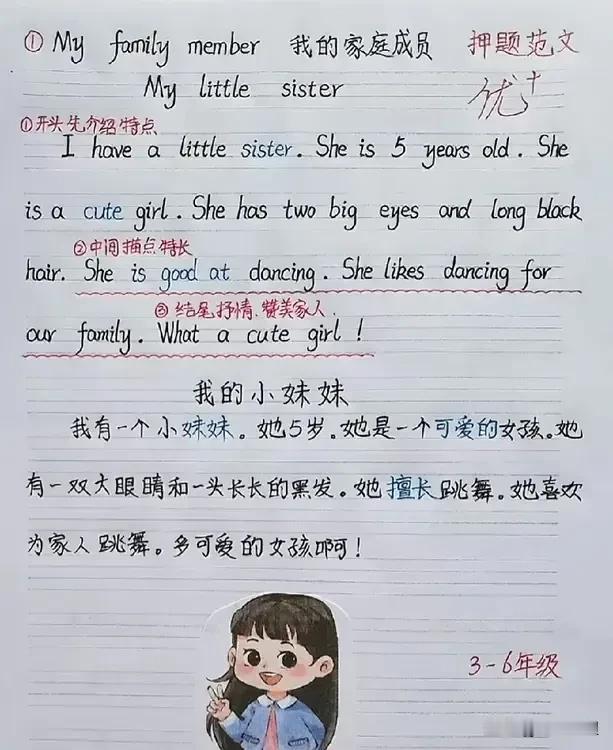 ① My family member 我的家庭成员 押题范文
My little sister 优+
①开头先介绍特点
I have a little sister. She is 5 years old. She
is a cute girl. She has two big eyes and long black
②中间描点特长
hair. She is good at dancing. She likes dancing for
③结尾抒情、赞美家人.
our family. What a cute girl!
我的小妹妹
我有一个小妹妹。她5岁。她是一个可爱的女孩。她
有一双大眼睛和一头长长的黑发。她擅长跳舞。她喜欢
为家人跳舞。多可爱的女孩啊!
3-6年级